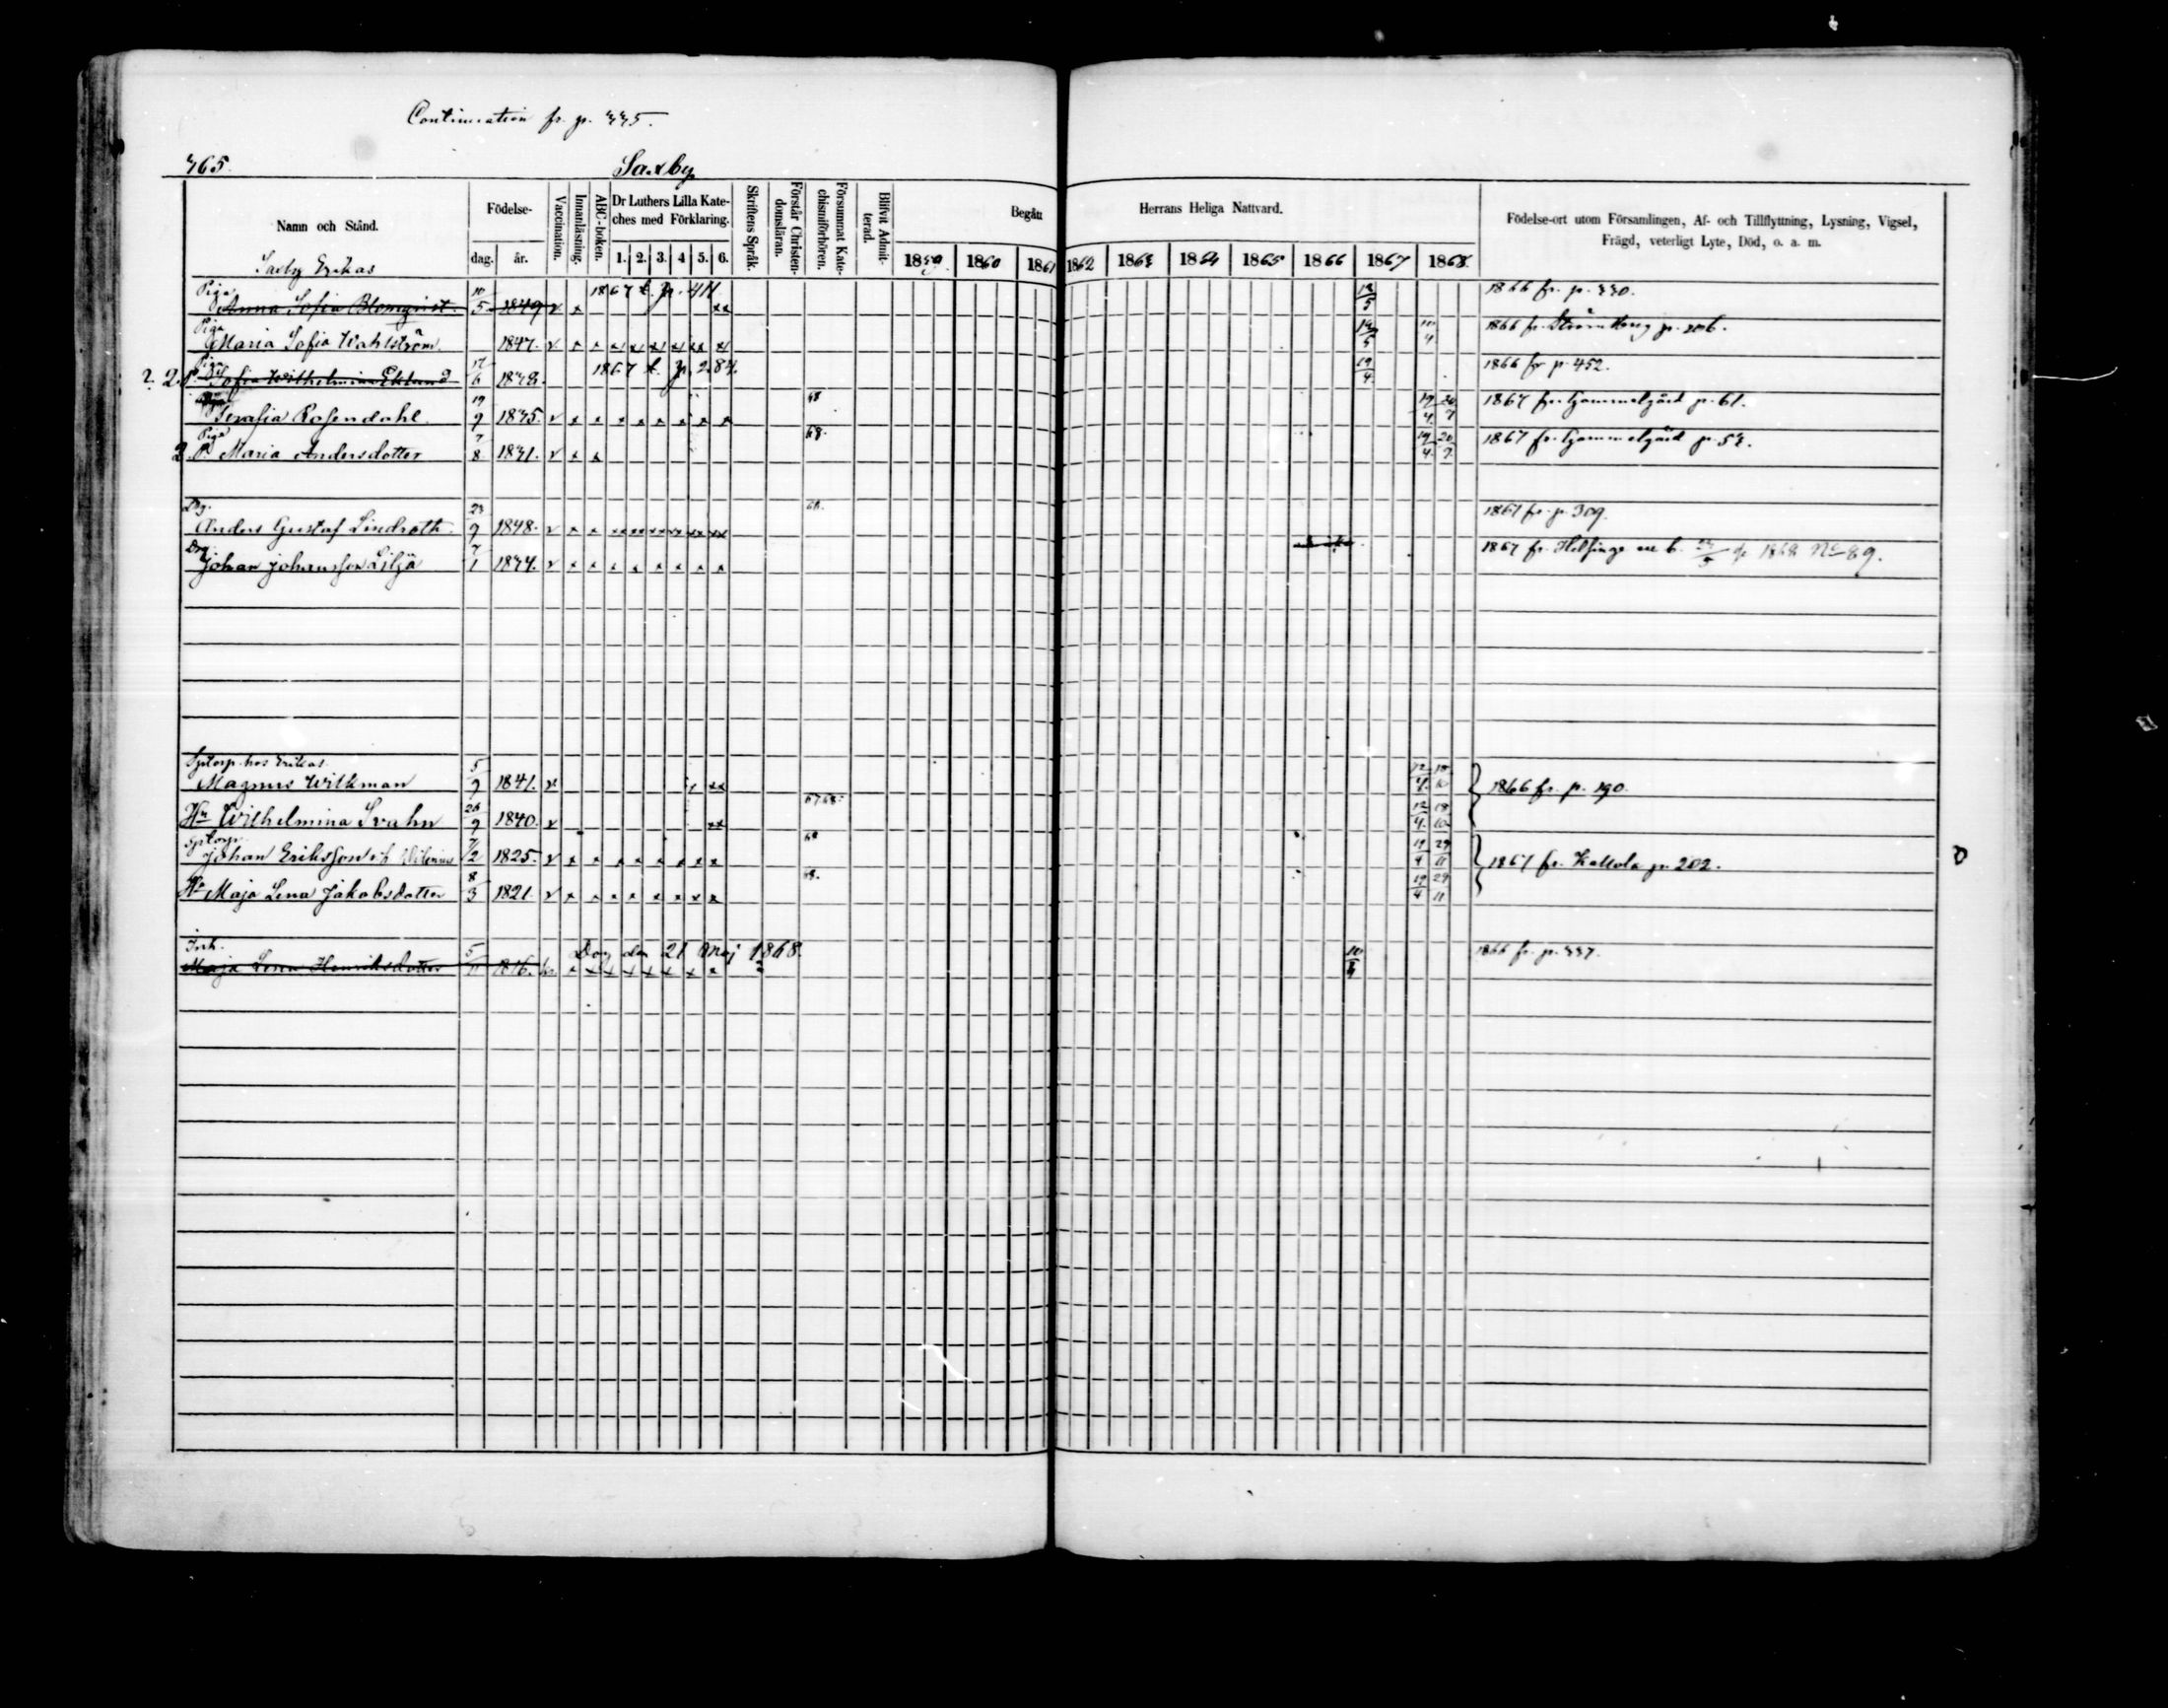 Continuation fr. p. 335.
365. Saxby
Namn och Stånd. Födelse- Vaccination. Innanläsning. ABC-boken. Dr Luthers Lilla Kate-ches med Förklaring. Skriftens Språk. Förstår Christen-domsläran. Försummat Kate-chismiförhören. Blifvit Admit-terad. Begått Herrans Heliga Nattvard. Födelse-ort utom Församlingen, Af- och Tillflyttning, Lysning, Vigsel, Frägd, veterligt Lyte, Död, o. a. m.
dag. år. 1. 2. 3. 4 5. 6. 1859. 1860 1861 1862 1863 1864 1865 1866 1867 1868.
Saxby Erikas
Piga Anna Sofia Blomqvist. 10/5 1849 v x 1867 t. p. 411 xx 12/5 1866 fr. p. 330.
Piga Maria Sofia Wahlström 1847. v x x x x x x xx x 19/5 10/4 1866 fr. Strömberg p. 206.
2. 2. P. Piga Sofia Wilhelmina Eklund 17/6 1838. 1867 t. p. 287. 19/4 1866 fr p. 452.
Serafia Rosendahl. 19/9 1835. v x x x x x x x x 68 19/4 20/7 1867 fr. Gammelgård p. 61.
2. P. Piga Maria Andersdotter 7/8 1831. v x x 68. 19/4 20/7 1867 fr. Gammelgård p. 53.
Drg. Anders Gustaf Lindroth. 23/9 1848. v x x xx xx xx xx xx xx 68. 1867 fr. p. 309.
Drg. Johan Johansson Lilja 7/1 1834. v x x x x x x x x 1867 fr. Helsinge 1868 No 89.
Sptorp. hos Erikas.
Magnus Wikman 5/9 1841. v xx 12/4 18/10 1866 fr. p. 190.
Hu Wilhelmina Svahn 26/9 1840. v xx 67 68. 12/4 18/10
Sptorp. Johan Eriksson 7/2 1825. v x x x x x x x x 68 19/4 29/11 1867 fr. Kallola p. 202.
Hu Maja Lena Jakobsdotter 8/3 1821. v x x x x x x x x 68. 19/4 29/11
Inh. Maja Lena Henriksdotter 5/11 1816. Dog den 21 Maj 1868. 1866 fr. p. 337.